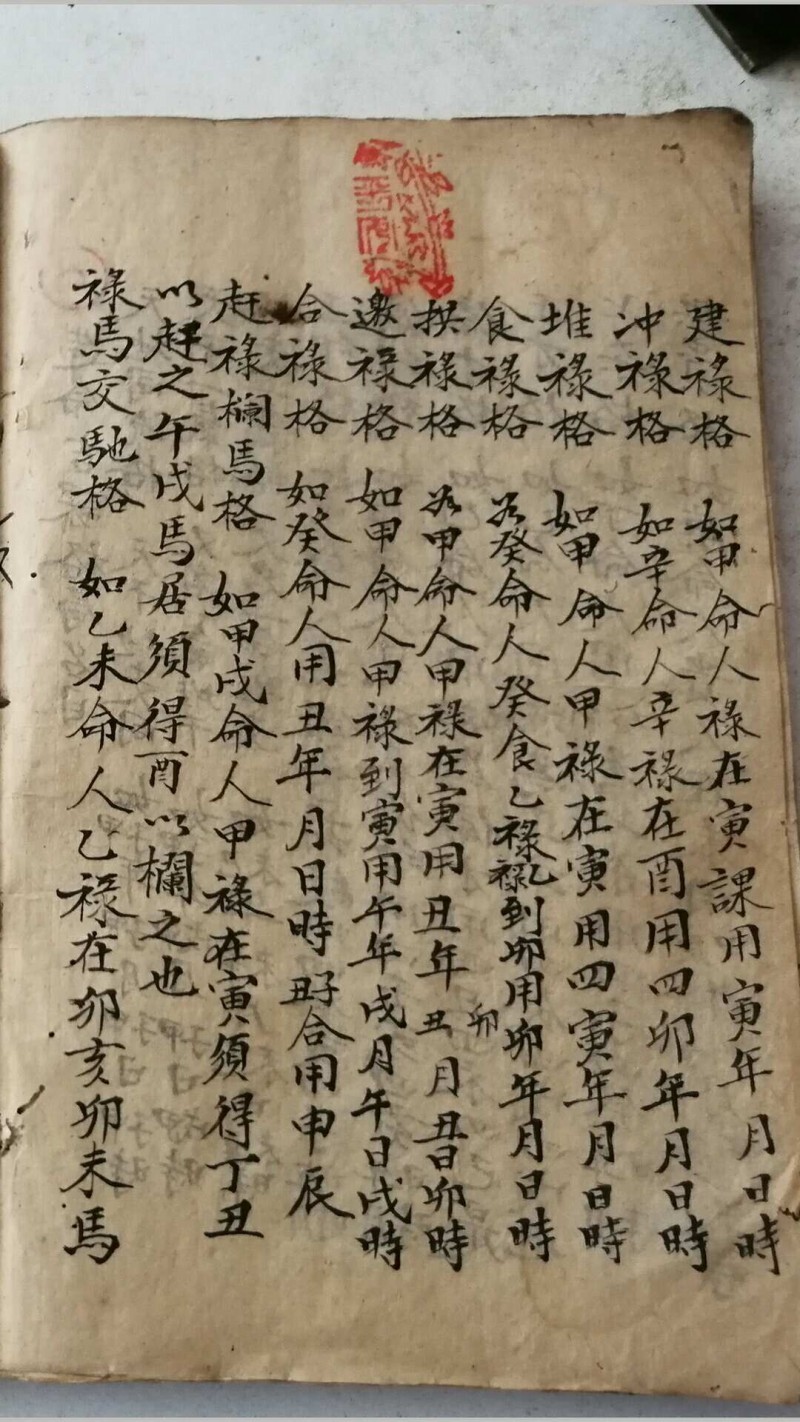 建祿格 如甲命人祿在寅課用寅年月日時
冲祿格 如辛命人辛祿在酉用四卯年月日時
堆祿格 如甲命人甲祿在寅用四寅年月日時
食祿格 如癸命人癸食乙祿祿乙到卯用卯年月日時
拱祿格 如甲命人甲祿在寅用丑年丑卯月丑日卯時
邀祿格 如甲命人甲祿到寅用午年戌月午日戌時
合祿格 如癸命人用丑年月日時子丑合用申辰
赶祿欄馬格 如甲戌命人甲祿在寅須得丁丑
以赶之午戌馬居須得酉以欄之也
祿馬交馳格 如乙未命人乙祿在卯亥卯未馬